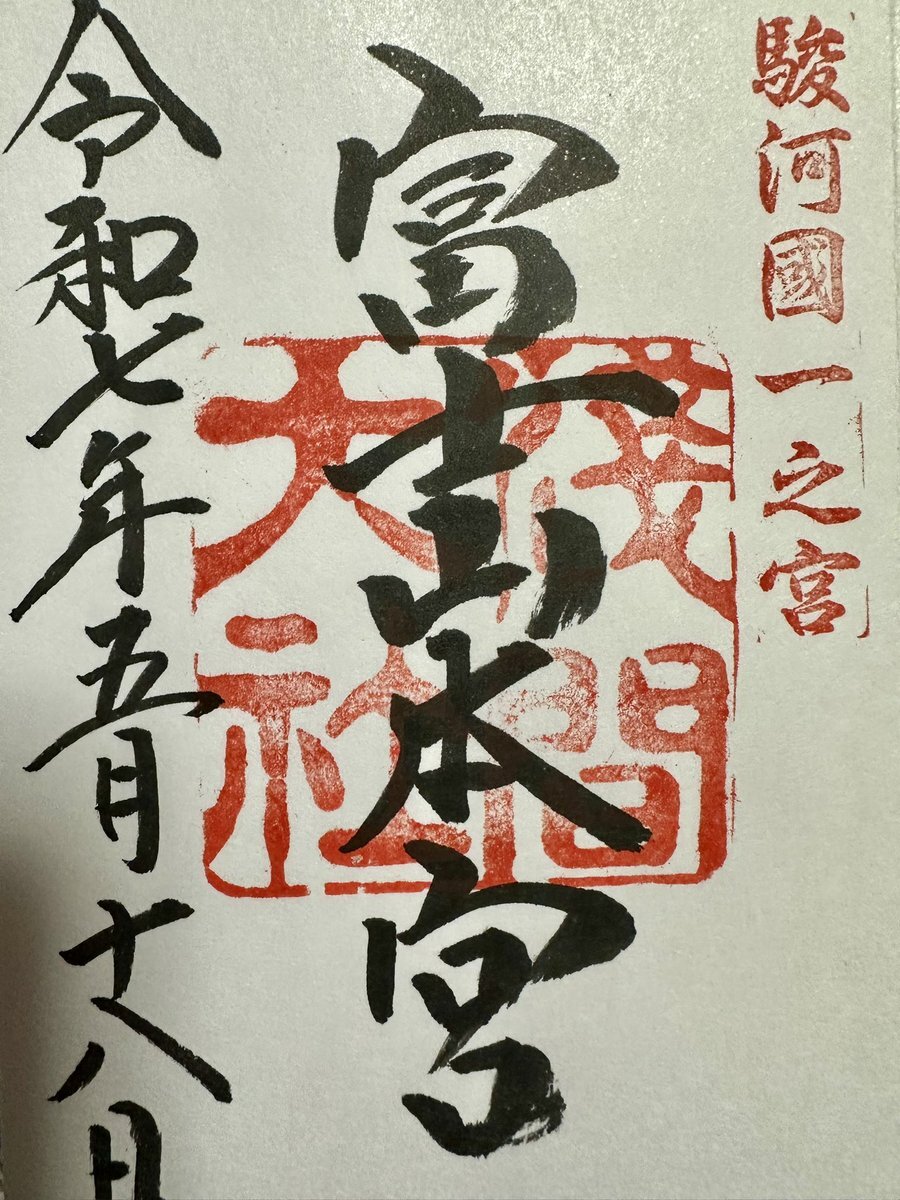 駿河國一之宮
富士山本宮
淺間大社
令和七年五月十八日